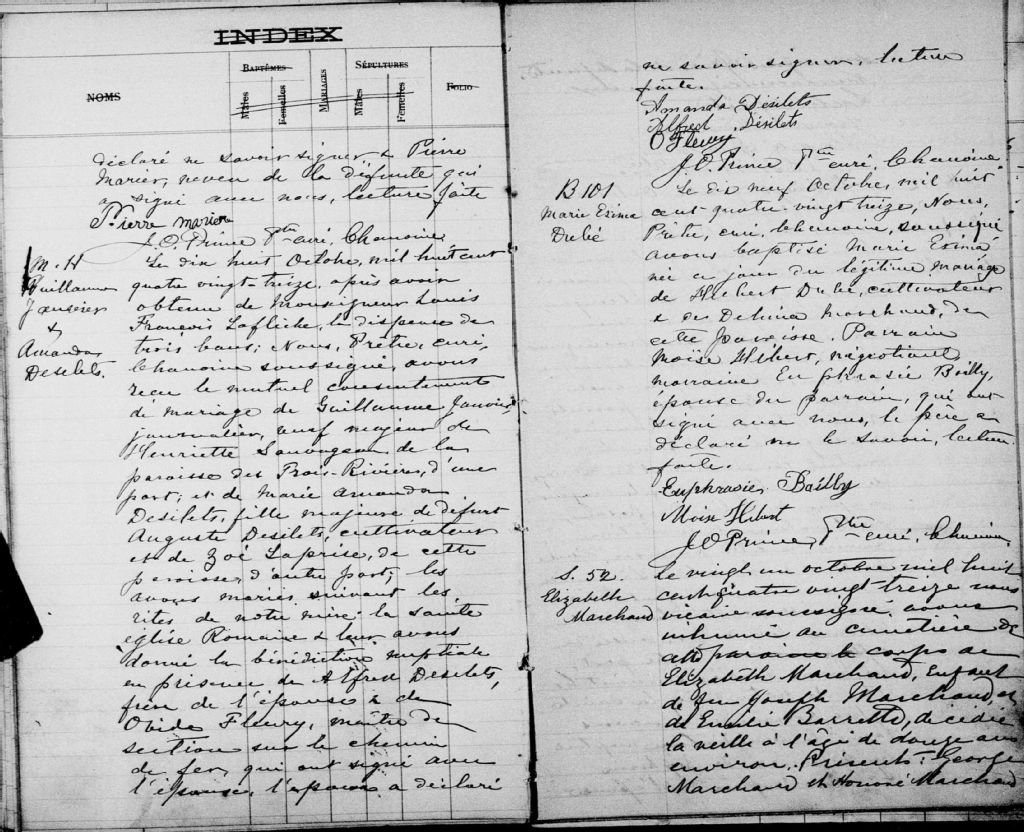 INDEX
NOMS
BAPTÊMES
Mâles
Femelles
MARIAGES
SÉPULTURES
Mâles
Femelles
FOLIO
déclaré ne savoir signer & Pierre
Marier, neveu de la défunte qui
a signé avec nous, lecture faite
Pierre Marier
J.O. Prince Ptre curé, Chanoine
M. H
Guillaume
Janvier
&
Amanda
Desilets.
Le dix huit Octobre, mil huit cent
quatre vingt treize, après avoir
obtenu de Monseigneur Louis
François Lafleche, la dispense de
trois bans; Nous, Prêtre, curé,
Chanoine soussigné, avons
reçu le mutuel consentement
de mariage de Guillaume Janvier
journalier, veuf majeur de
Henriette Sauvageau de la
paroisse des Trois-Rivières, d'une
part; et de Marie Amanda
Desilets, fille majeure de défunt
Auguste Desilets, cultivateur
et de Zoé Laprise, de cette
paroisse, d'autre part; les
avons mariés suivant les
rites de notre mère la sainte
église Romaine & leur avons
donné la bénédiction nuptiale
en présence de Alfred Desilets,
frère de l'épouse & de
Obide Fleury, maître de
section sur le chemin
de fer, qui ont signé avec
l'épouse, l'époux a déclaré
ne savoir signer, lecture
faite.
Amanda Désilets
Alfred Désilets
O Fleury
J.O. Prince Ptre curé, Chanoine
B 101
Marie Exima
Dubé
Le dix neuf Octobre, mil huit
cent quatre-vingt treize, Nous,
Prêtre, curé, Chanoine, soussigné
avons baptisé Marie Exima
née ce jour du légitime mariage
de Hubert Dubé, cultivateur
& de Delima Marchand, de
cette paroisse. Parrain
Moïse Hébert, négotiant,
marraine Euphrasie Bailly,
épouse du parrain, qui ont
signé avec nous, le père a
déclaré ne le savoir, lecture
faite.
Euphrasie Bailly
Moïse Hébert
J O Prince, Ptre curé, Chanoine
S. 52.
Elizabeth
Marchand
Le vingt un octobre mil huit
cent quatre vingt treize nous
vicaire soussigné avons
inhumé au cimetière de
cette paroisse le corps de
Elizabeth Marchand, Enfant
de feu Joseph Marchand et
de Emélie Barrette, décédée
la veille à l'âge de douze ans
environ. Présents: George
Marchand et Honoré Marchand